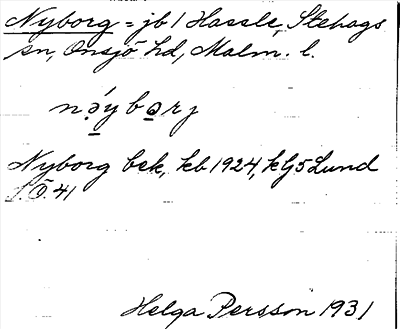 Nyborg = jb / Hassle, Stehags
sn, Onsjö hd, Malm. l.
nǝ́ybǝrj
Nyborg bek, kb 1924, kGj5 Lund
S.Ö. 41
Helga Persson 1931